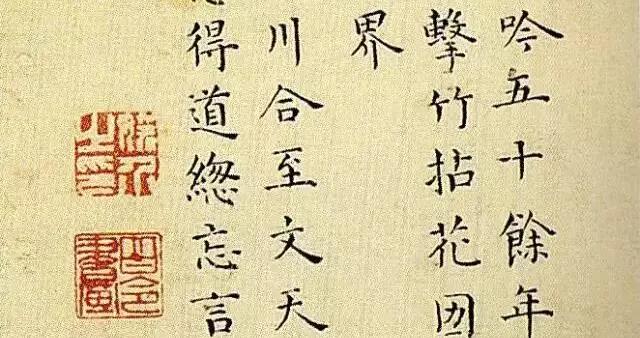 吟五十餘年
擊竹拈花
界
川合至文天
得道緫忘言